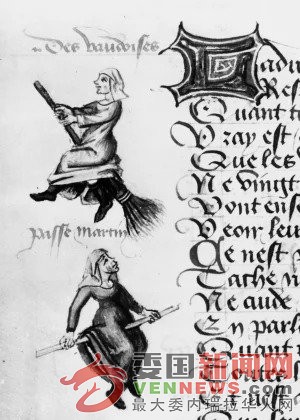 Des vaudoises
passe martin
Quant
Vray est
Que les
Ne vingt
Vont ense
Veoir leu
Ce nest
Tache n
Ne aude
En parl
Quant
委国新闻网
VENNEWS.COM
最大委内瑞拉华人网